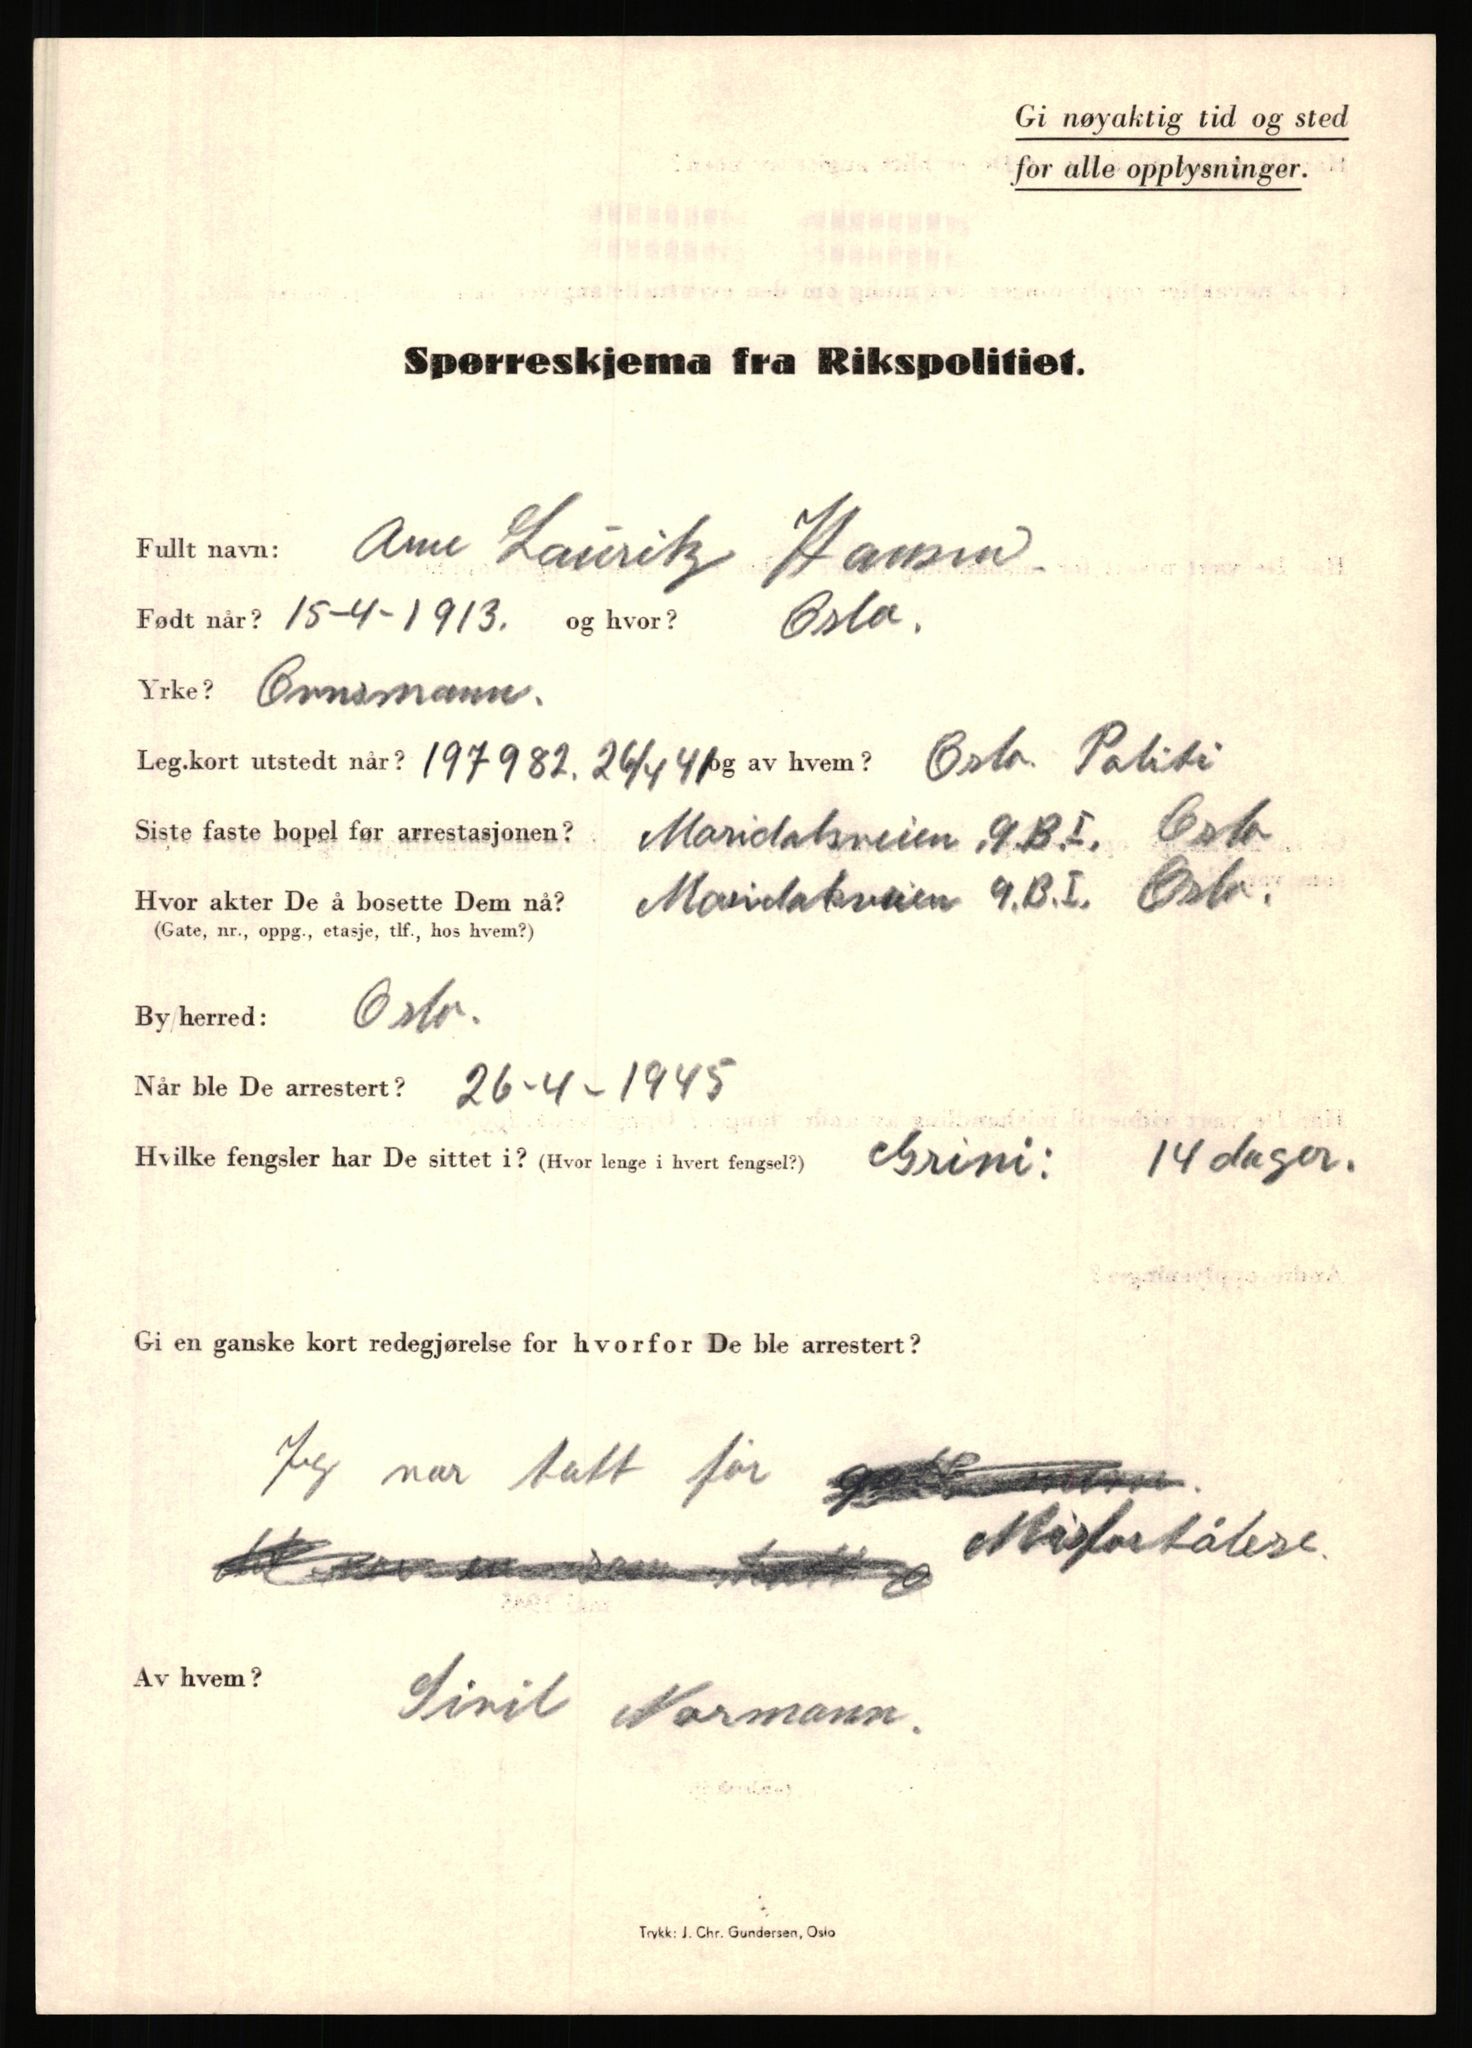 Gi nøyaktig tid og sted
for alle opplysninger.
Spørreskjema fra Rikspolitiet.
Fullt navn: Arne Lauritz Hansen
Født når? 15-4-1913. og hvor? Oslo.
Yrke? Ovnsmann.
Leg.kort utstedt når? 197982. 26/4 41 og av hvem? Oslo Politi
Siste faste bopel før arrestasjonen? Maridalsveien 9.B.I. Oslo
Hvor akter De å bosette Dem nå? Maridalsveien 9.B.I. Oslo.
(Gate, nr., oppg., etasje, tlf., hos hvem?)
By/herred: Oslo.
Når ble De arrestert? 26-4-1945
Hvilke fengsler har De sittet i? (Hvor lenge i hvert fengsel?) Grini: 14 dager.
Gi en ganske kort redegjørelse for hvorfor De ble arrestert?
Jeg var tatt for
Misforståelse.
Av hvem? Sivil Normann.
Trykk: J. Chr. Gundersen, Oslo